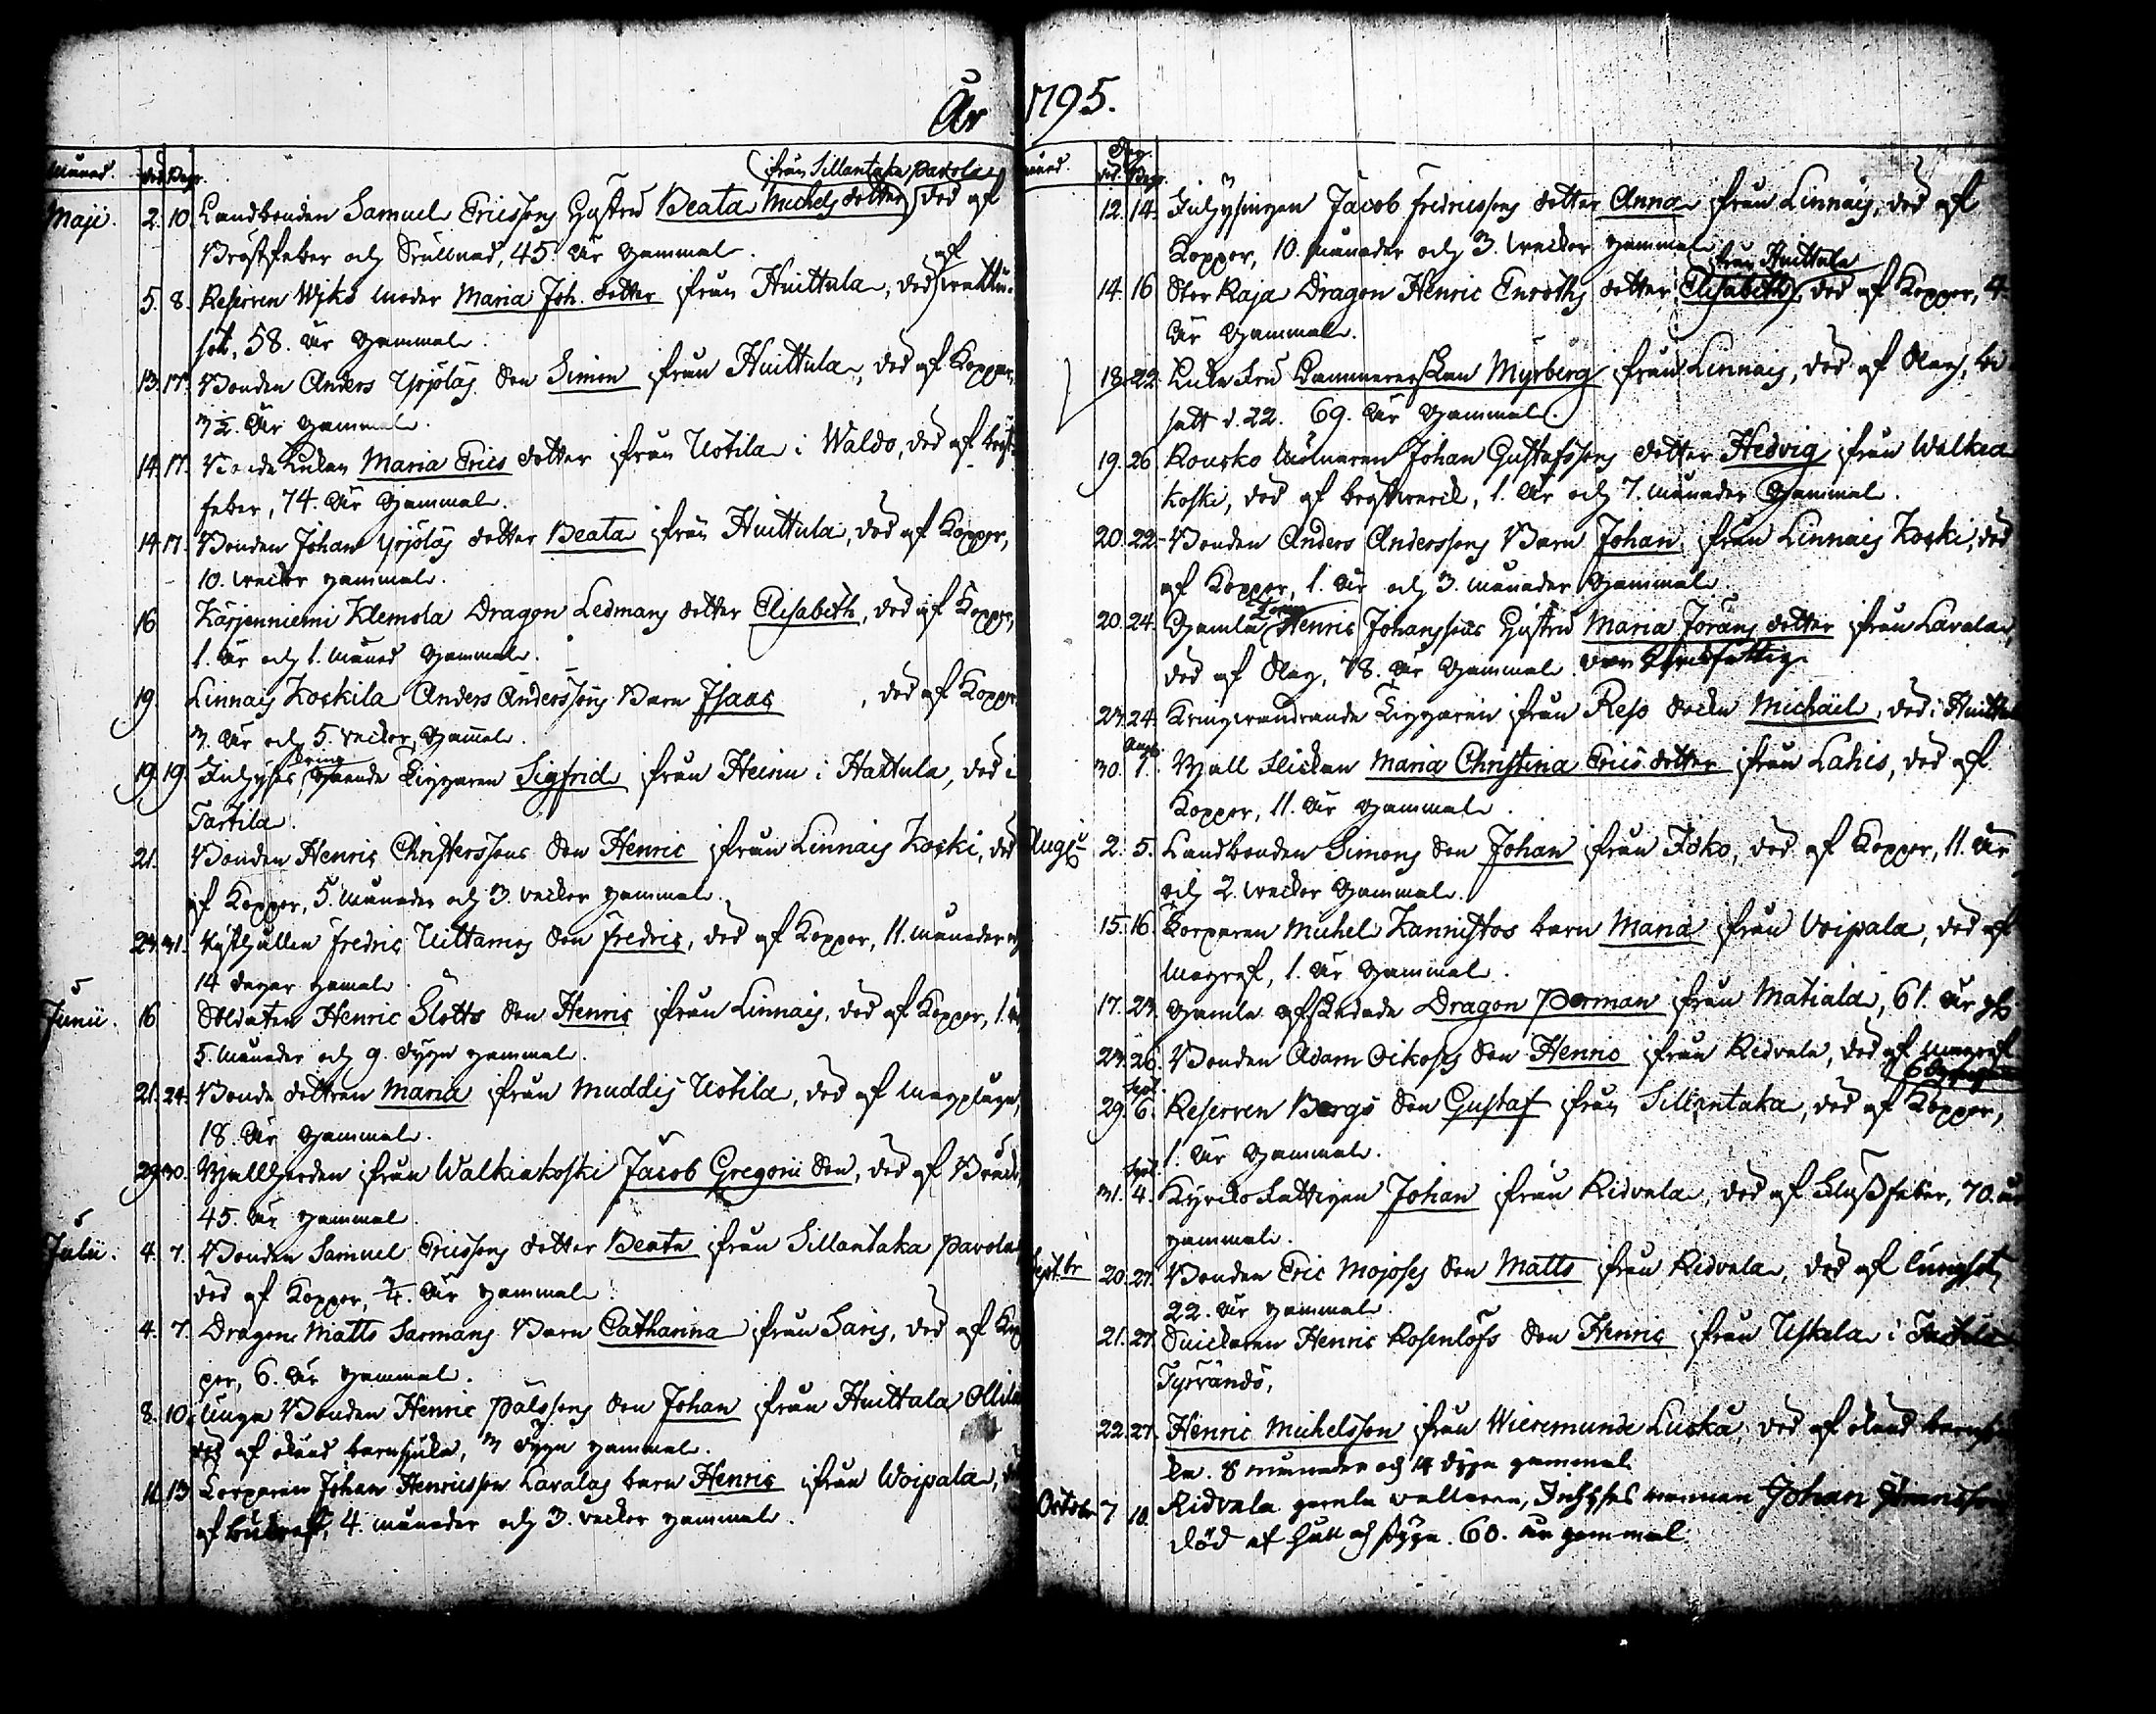 År 1795.
Månad. död Begr.
från Sillantaka Pavola
Maji. 2. 10. Landbonden Samuel Ericssons Hustru Beata Michels dotter, död af
Bröstfeber och 45 år gammal.
5. 8. Reserven Wiks moder Maria Joh. dotter ifrån Huittula, död af wattu-
sot, 58. år gammal.
13. 17. Bonden Anders Yrjölas Son Simon ifrån Huittula, död af Koppor,
3½. år gammal.
14. 17. Maria Erics dotter ifrån Uotila i Waldo, död af bröst-
feber, 74. år gammal.
14. 17. Bonden Johan Yrjölas dotter Beata ifrån Huittula, död af Koppor,
10. weckor gammal.
16 Kärjenniemi Klemola Dragon Ledmans dotter Elisabeth, död af Koppor,
1. år och 1. månad gammal.
19. Linnais Koskila Anders Anderssons Barn Isaac, död af Koppor
3. år och 5. veckor gammal.
19. 19. Inhyses kring gående Tiggaren Sigfrid ifrån Heinu i Hattula, död i
Tartila.
21. Bonden Henric Christerssons Son Henric ifrån Linnais Koski, död
af Koppor, 5. månader och 3. veckor gammal.
23. 31. Fredric Uittamos Son Fredric, död af Koppor, 11. månader och
14 dagar gamal.
Junii. 16 Soldaten Henric Slotts Son Henric ifrån Linnais, död af Koppor, 1. år
5. månader och 9. dygn gammal.
21. 24. Bonde dottren Maria ifrån Muddis Uotila, död af magplåga,
18. år gammal.
29. 30. Wallherden ifrån Walkiakoski Jacob Gregorii Son, död af
45. år gammal.
Julii. 4. 7. Bonden Samuel Ericssons dotter Beata ifrån Sillantaka Pavola
död af Koppor, ¾. år gammal.
4. 7. Dragon Matts Sarmans Barn Catharina ifrån Saris, död af Kop-
por, 6. år gammal.
8. 10. Unga Bonden Henric Pålssons Son Johan ifrån Huittula Ollila
död af okänd barnsjuka, 3 dygn gammal.
11. 13 Torparen Johan Henricsson Lavalas barn Henric ifrån Woipala,
af 4. månader och 3. veckor gammal.
månad. Dag. död. Begr.
12. 14. Inhysingen Jacob Fredricssons dotter Anna ifrån Linnais, död af
Koppor, 10. månader och 3. weckor gammal.
från Huittula
14. 16 Stor Raja Dragon Henric Enroths dotter Elisabeth, död af Koppor, 4.
år gammal.
18. 22. Enke Fru Kammererskan Myrberg ifrån Linnais, död af Slag, bi-
satt d. 22. 69. år gammal.
19. 26 Kousko Johan Gustafssons dotter Hedvig ifrån Walkea
koski, död af bröstwerck, 1. år och 7. månader gammal.
20. 22. Bonden Anders Anderssons Barn Johan, ifrån Linnais Koski, död
af Koppor, 1. år och 3. månader gammal.
20. 24. Gamla Henric Johanssons Hustru Maria Jörans dotter ifrån Lavala,
död af Slag, 78. år gammal.
23. 24. Kringwandrande Tiggaren ifrån Reso Socken Michäel, död i Huittula
30. Aug. 1. Wall flickan Maria Christina Erics dotter ifrån Lahis, död af
Koppor, 11. år gammal.
Augusti 2. 5. Landbonden Simons Son Johan ifrån Joko, död af Koppor, 11. år
och 2. weckor gammal.
15. 16. Torparen Michel Kannistos barn Maria ifrån Voipala, död af
Magref, 1. år gammal.
17. 23. Gamla afskedade Dragon Porman ifrån Matiala, 61. år gl.
23. 26. Bonden Adam Oikoses Son Henric ifrån Ridvala, död af magref
29. Sept. 6. Reserven Bergs Son Gustaf ifrån Sillantaka, död af Koppor,
1. år gammal.
31. Sept. 4. Kyrcko Fattigen Johan ifrån Ridvala, död af Flussfeber, 70. år
gammal.
Septbr 20. 27. Bonden Eric Mojoses Son Matts ifrån Ridvala, död af lungsot,
22. år gammal.
21. 27. Snickaren Henric Rosenlöfs Son Henric ifrån Uskela i
Tyrvändö,
22. 27. Henric Michelsson ifrån Wieremunde Luska, död af okänd barnsju-
ka. 8 månader och 14 dygn gammal
October 7. 10. Ridvala gamla Inhyses mannen Johan
död af håll och styng. 60. år gammal.